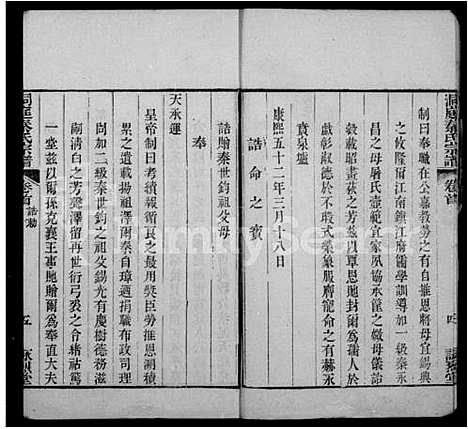 洞庭秦氏宗譜
卷首
制曰奉職在公嘉教勞之有自推恩將母宜錫典
之攸隆爾江南鎮江府儒學訓導加一級秦永
昌之母屠氏壼範宜家夙協承筐之媺母儀詒
穀載昭晝荻之芳兹以覃恩貤封爾爲孺人於
戲彰淑德於不瑕式榮象服膺寵命之有赫永
賁泉壚
康熙五十二年三月十八日
誥命之寶
誥贈秦世鈞祖父母
奉
天承運
皇帝制曰考績報循良之最用奬臣勞推恩溯積
累之遺載揚祖澤爾秦自璋迺捐職布政司理
問加二級秦世鈞之祖父錫光有慶樹德務滋
嗣清白之芳聲澤留再世衍弓裘之令緒祜篤
一堂兹以爾孫克襄王事貤贈爾爲奉直大夫
洞庭秦氏宗譜
卷首 誥勅
五
詠烈堂